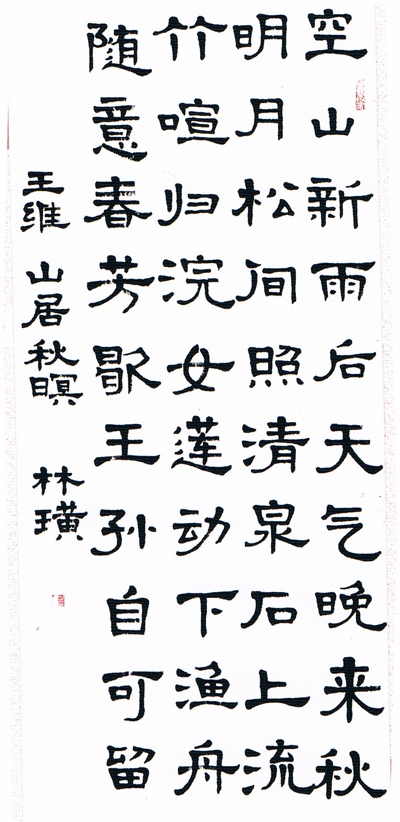 空山新雨后天气晚来秋
明月松间照清泉石上流
竹喧归浣女莲动下渔舟
随意春芳歇王孙自可留
王维 山居秋暝 林璜